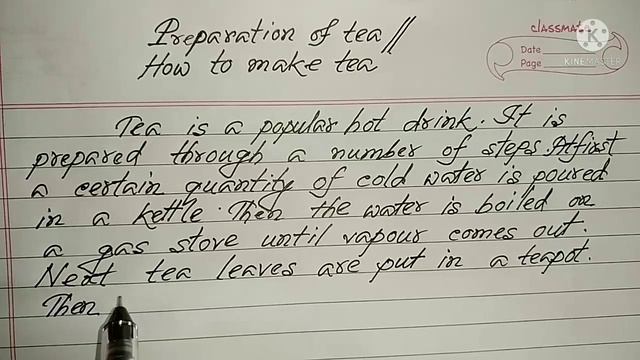 Preparation of tea //
How to make tea
classmate
Date
Page
KINEMASTER
Tea is a popular hot drink. It is
prepared through a number of steps. At first
a certain quantity of cold water is poured
in a kettle. Then the water is boiled on
a gas stove until vapour comes out.
Next tea leaves are put in a teapot.
Then